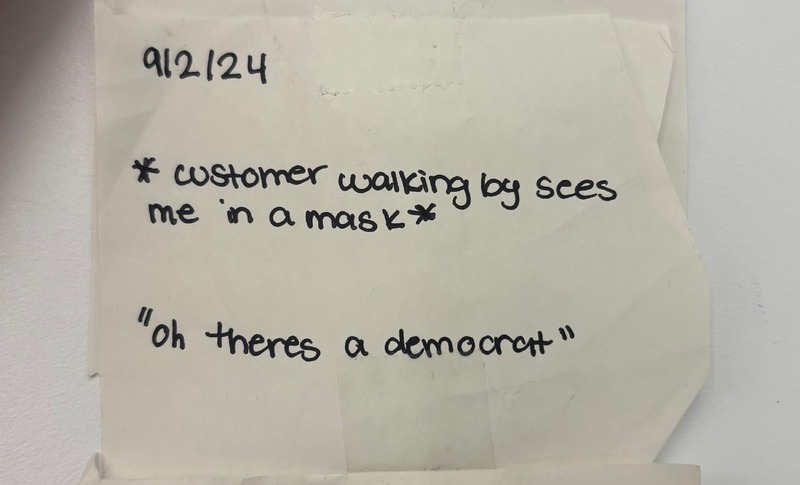 9/2/24
* customer walking by sees
me in a mask*
"oh theres a democratt"